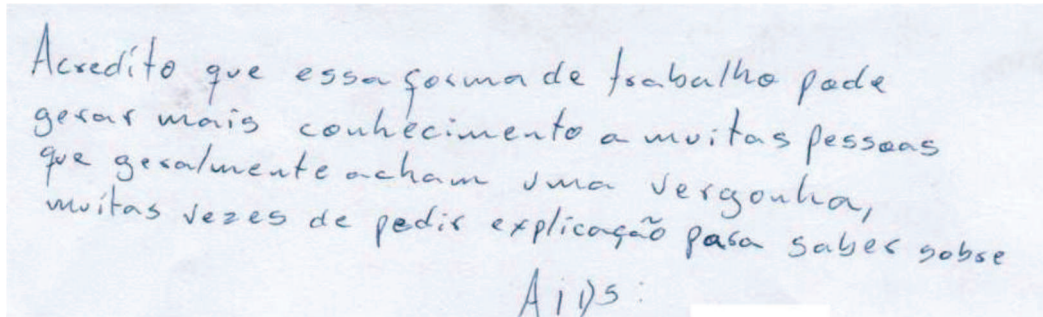 Acredito que essa forma de trabalho pode
gerar mais conhecimento a muitas pessoas
que geralmente acham uma vergonha,
muitas vezes de pedir explicação para saber sobre
AIDS: